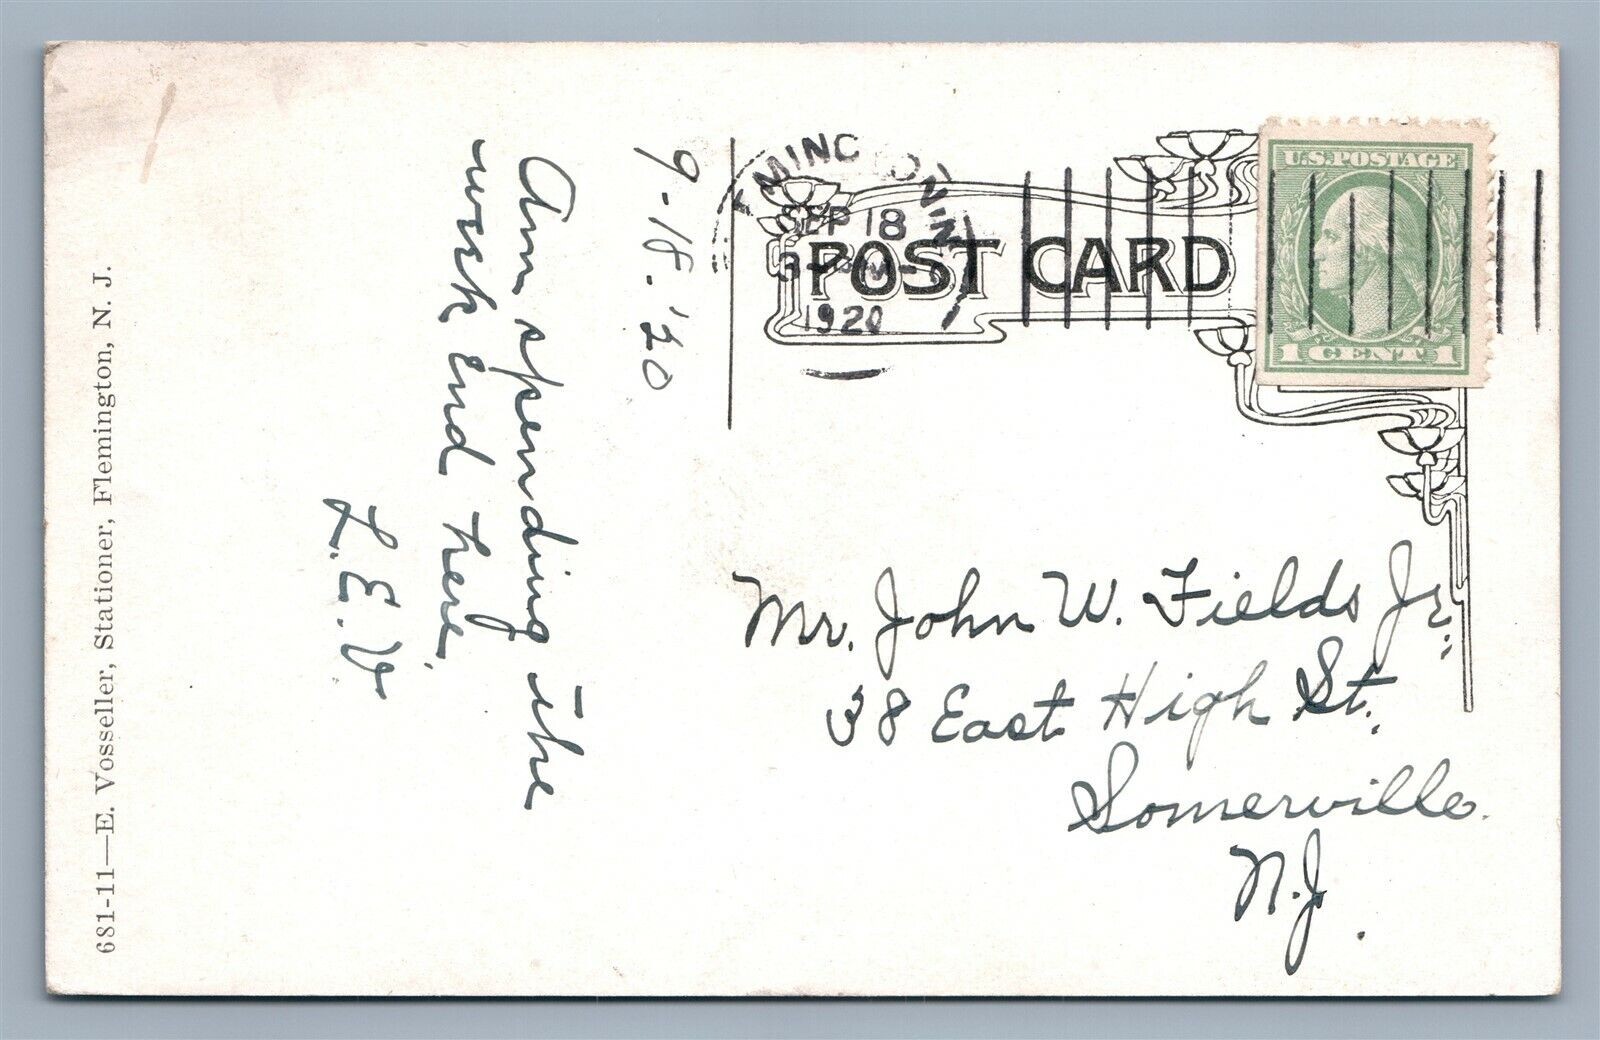 9-18-'20
Am spending the
week end here.
L.E.V
FLEMINGTON, N.J.
SEP 18
1920
POST CARD
U.S. POSTAGE
1 CENT 1
Mr. John W. Fields Jr.
38 East High St.
Somerville.
N.J.
681-11—E. Vosseller, Stationer, Flemington, N. J.